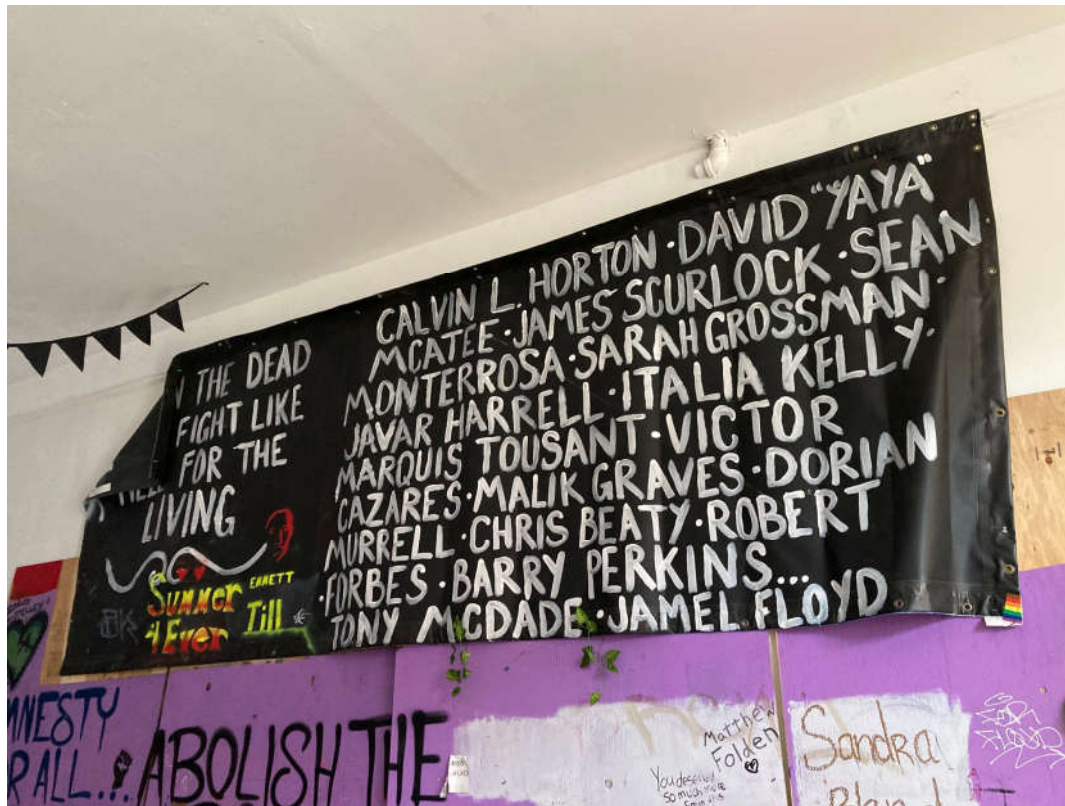 THE DEAD
FIGHT LIKE
FOR THE
LIVING
CALVIN L. HORTON · DAVID "YAYA"
MCATEE · JAMES SCURLOCK · SEAN
MONTERROSA · SARAH GROSSMAN ·
JAVAR HARRELL · ITALIA KELLY ·
MARQUIS TOUSANT · VICTOR
CAZARES · MALIK GRAVES · DORIAN
MURRELL · CHRIS BEATY · ROBERT
FORBES · BARRY PERKINS...
TONY MCDADE · JAMEL FLOYD
Summer
4 Ever
EMMETT
Till
BK
MNESTY
R ALL...
ABOLISH THE
Matthew
Folden
You deserved
so much more
Sandra